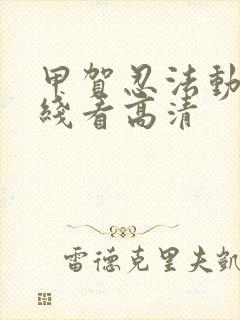 甲賀忍法動
綫看高清
雷德克里夫凱